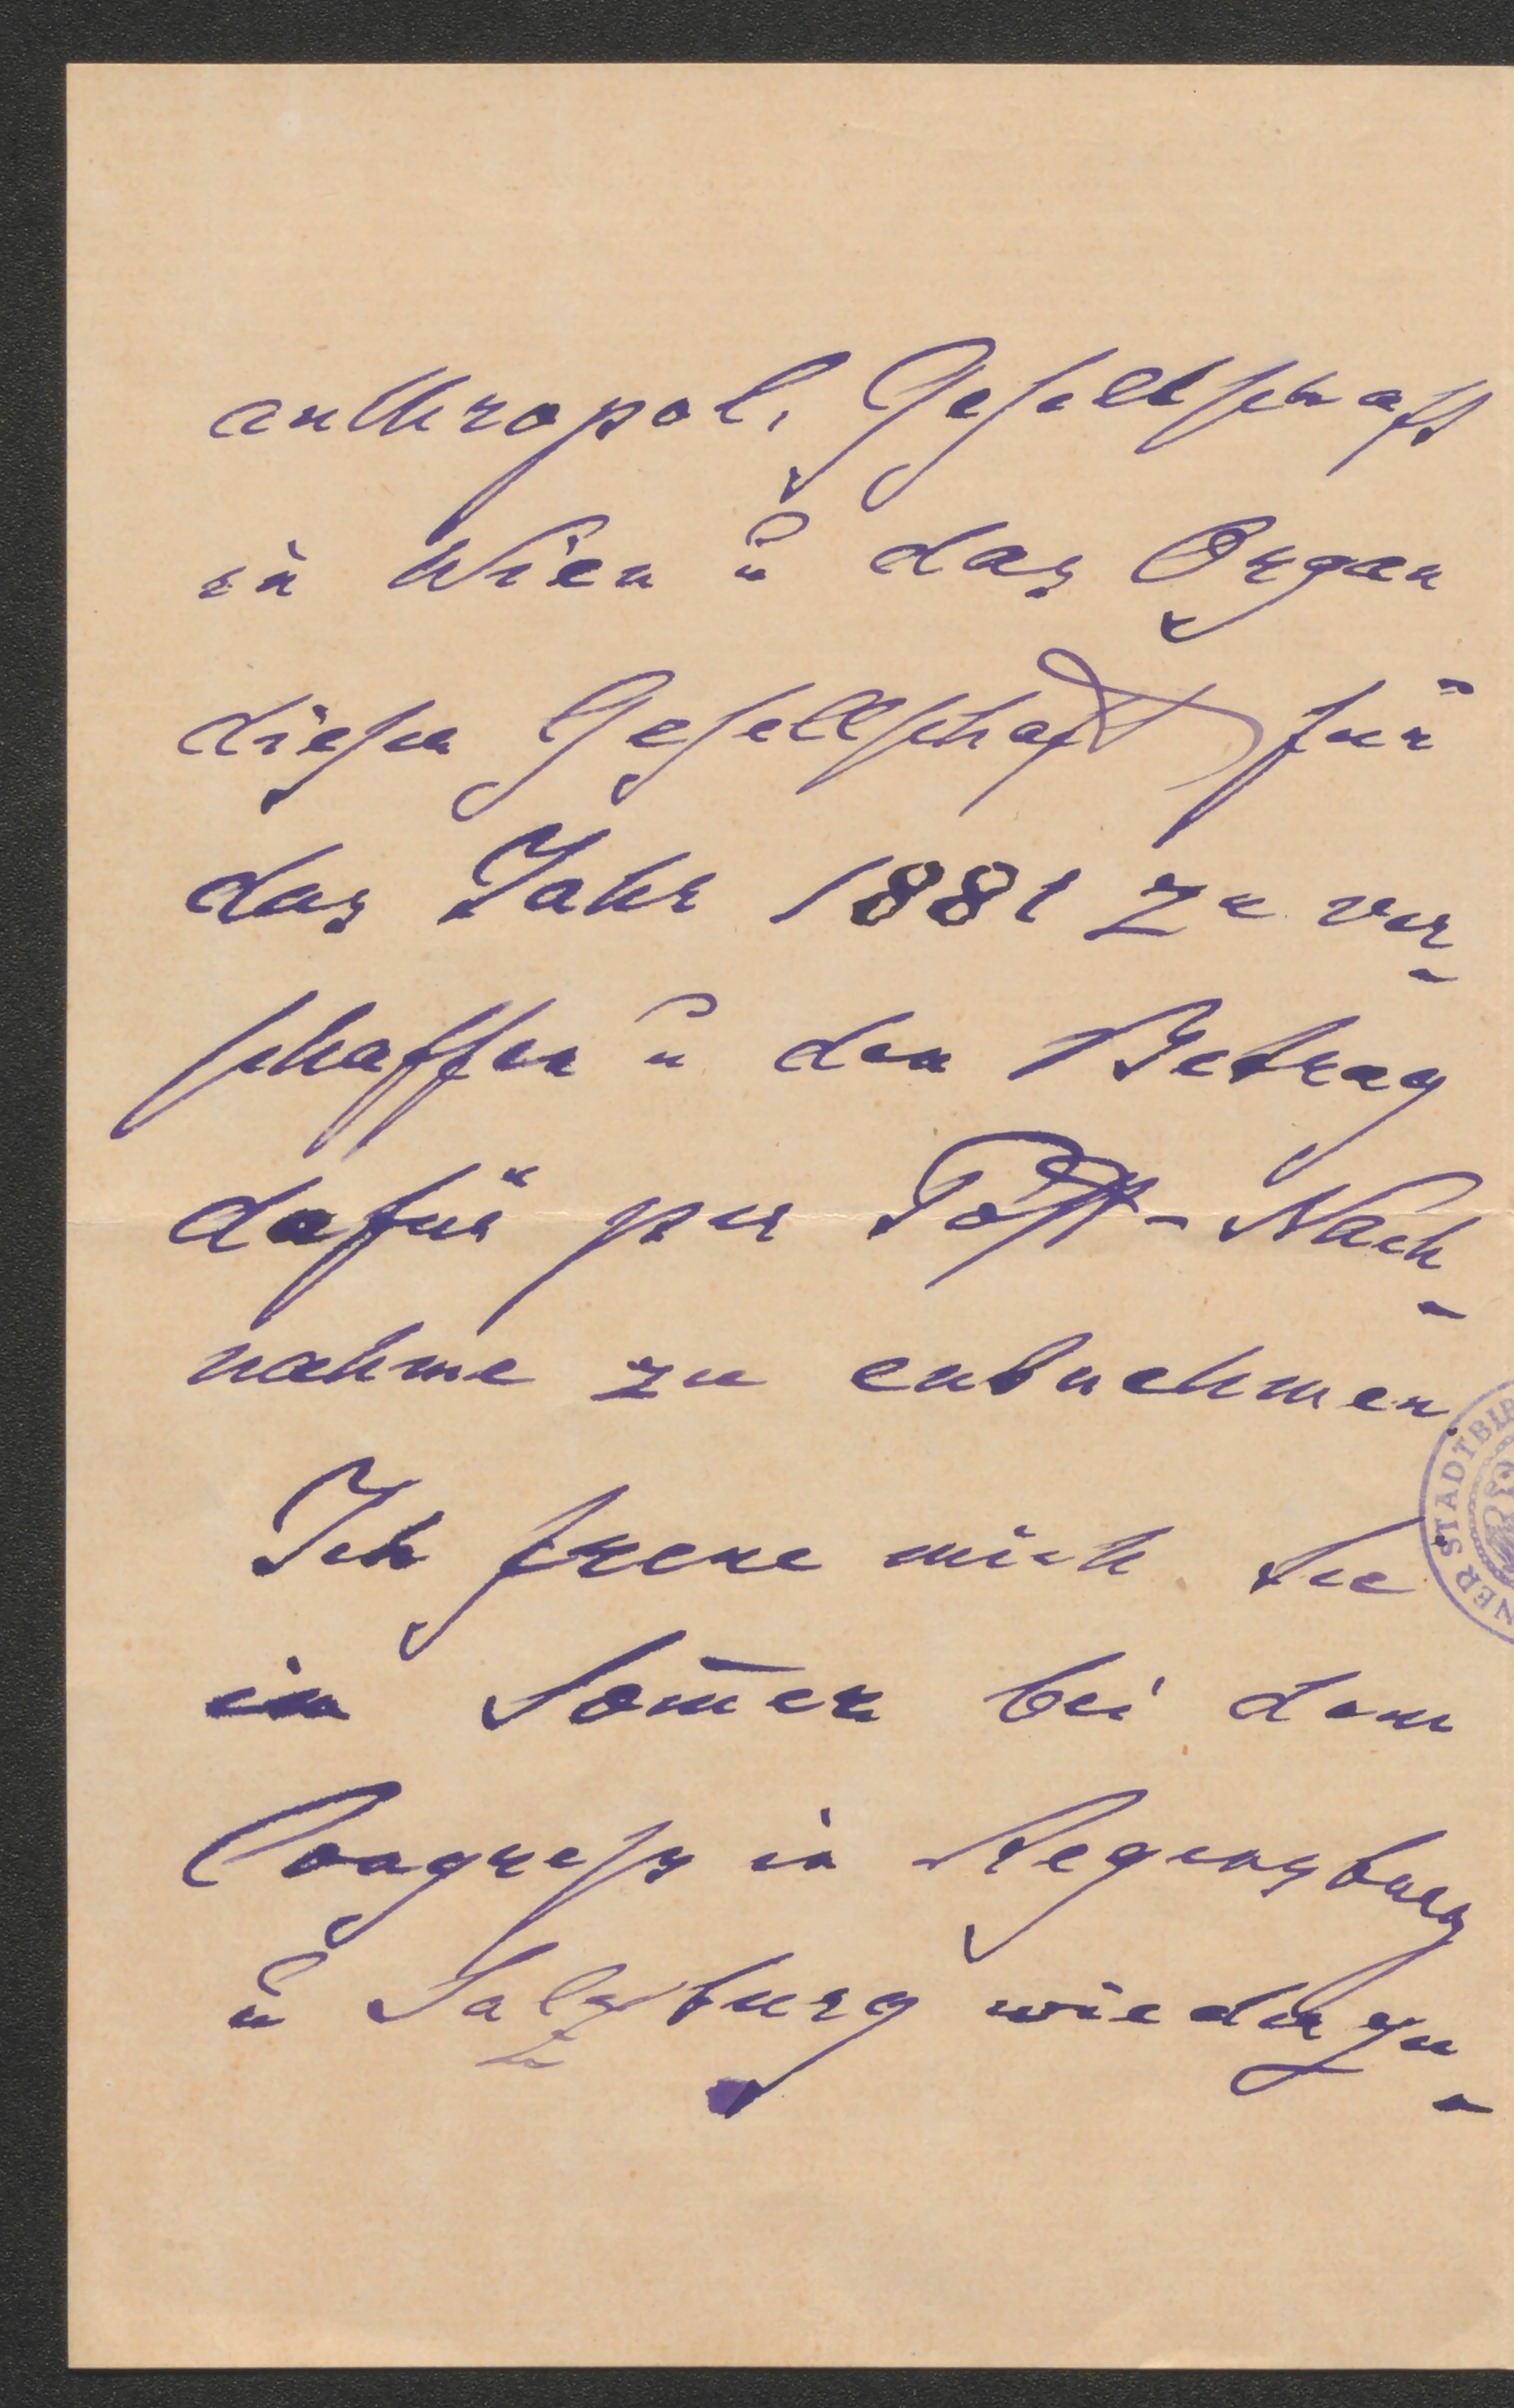 anthropol. Gesellschaft
in Wien u das Organ
dieser Gesellschaft für
das Jahr 1881 zu ver-
schaffen u den Betrag
dafür per Post-Nach-
nahme zu entnehmen.
Ich freue mich Sie
im Som̄er bei dem
Congress in Regensburg
u Salzburg wiederzu-
NER STADTBIB